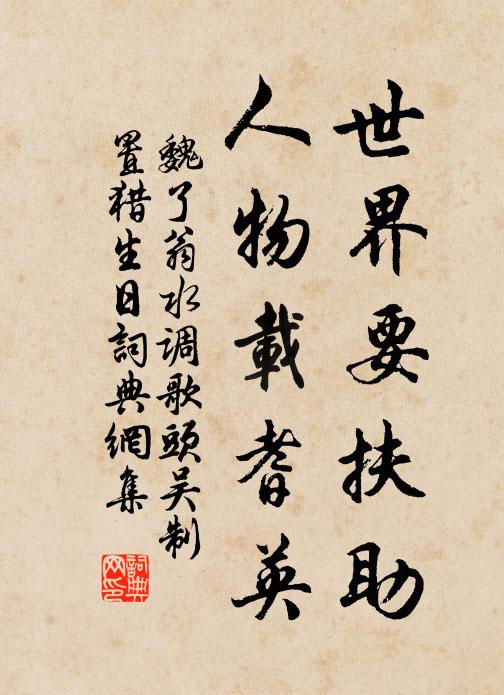 世界要扶助
人物載耆英
魏了翁水调歌頭吴制
置猎生日詞典網集
詞典
网印